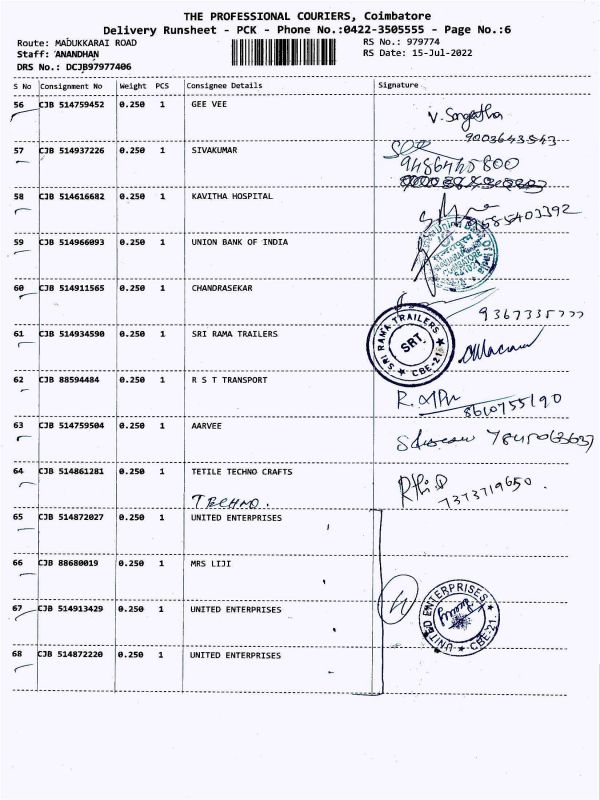 THE PROFESSIONAL COURIERS, Coimbatore
Delivery Runsheet - PCK - Phone No.:0422-3505555 - Page No.:6
Route: MADUKKARAI ROAD
RS No.: 979774
Staff: ANANDHAN
RS Date: 15-Jul-2022
DRS No.: DCJB97977406
S No Consignment No Weight PCS Consignee Details Signature
56 CJB 514759452 0.250 1 GEE VEE
V. Sangeetha
9003643543
57 CJB 514937226 0.250 1 SIVAKUMAR
9486445800
58 CJB 514616682 0.250 1 KAVITHA HOSPITAL
59 CJB 514966093 0.250 1 UNION BANK OF INDIA
60 CJB 514911565 0.250 1 CHANDRASEKAR
61 CJB 514934590 0.250 1 SRI RAMA TRAILERS
SRI RAMA TRAILERS
SRT.
62 CJB 88594484 0.250 1 R S T TRANSPORT
8610755190
63 CJB 514759504 0.250 1 AARVEE
64 CJB 514861281 0.250 1 TETILE TECHNO CRAFTS
7373719650.
TECHNO.
65 CJB 514872027 0.250 1 UNITED ENTERPRISES
66 CJB 88680019 0.250 1 MRS LIJI
67 CJB 514913429 0.250 1 UNITED ENTERPRISES
UNITED ENTERPRISES
CBE-21.
68 CJB 514872220 0.250 1 UNITED ENTERPRISES